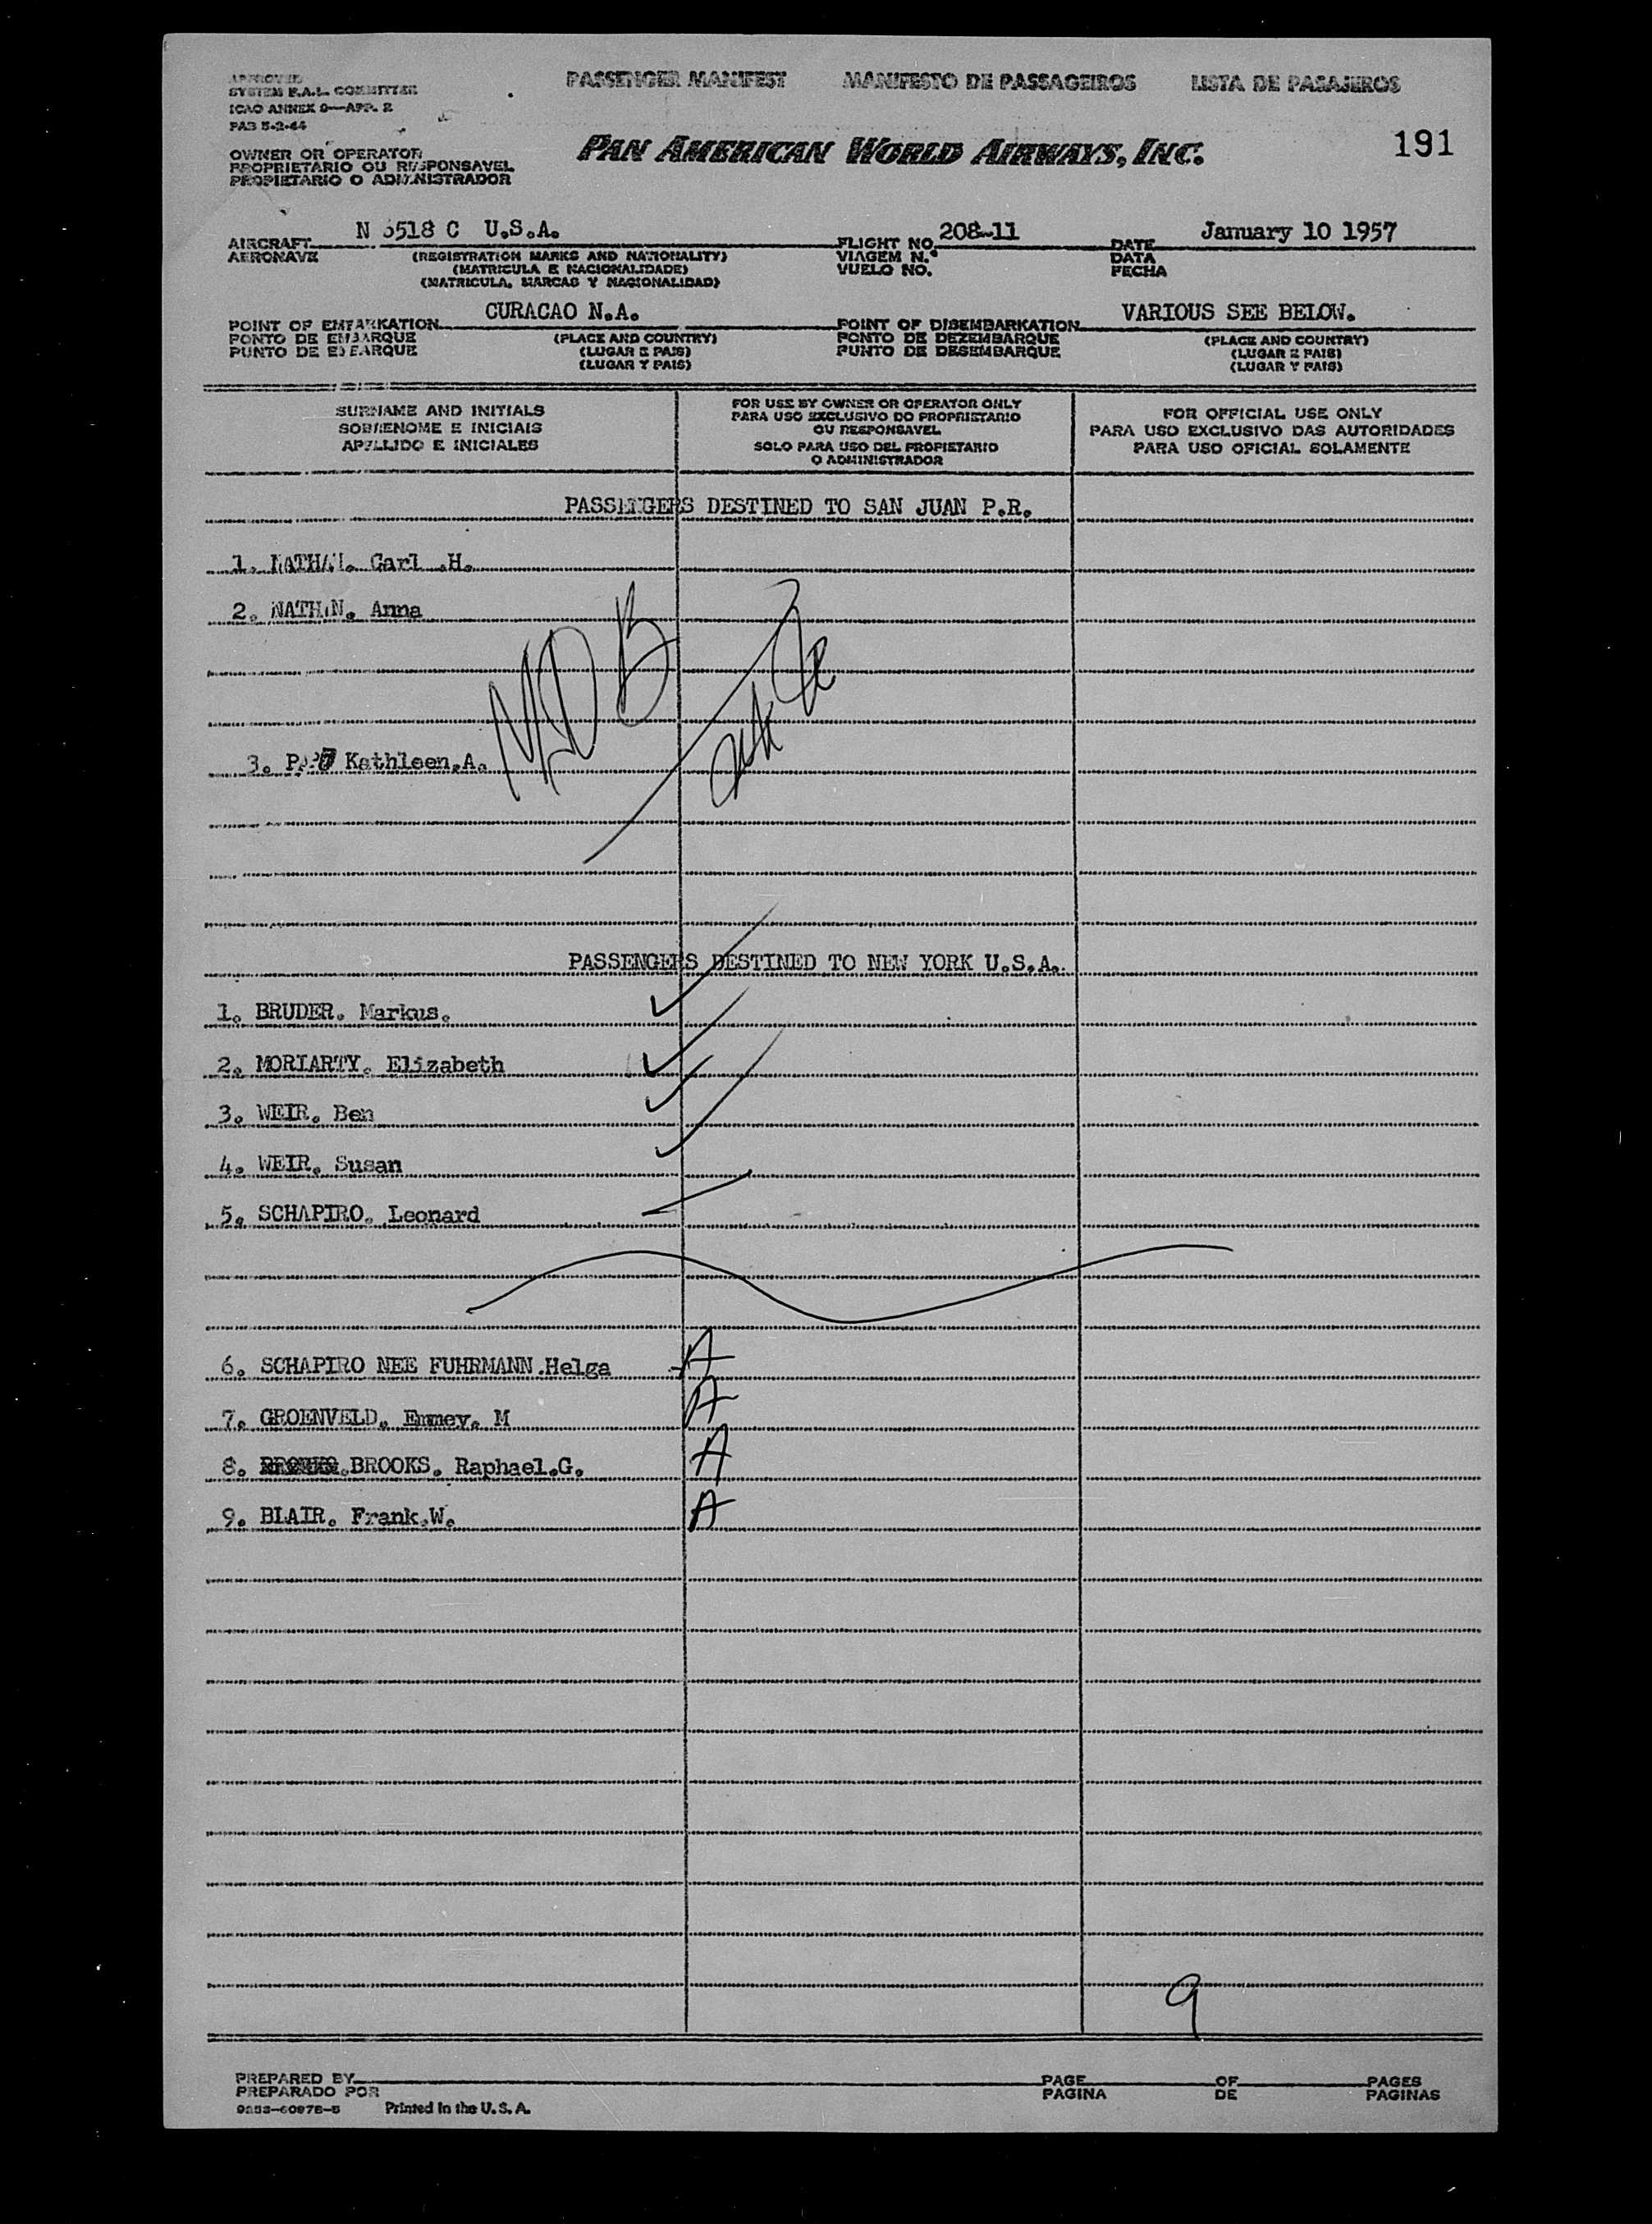 APPROVED
SYSTEM F.A.L. COMMITTEE
ICAO ANNEX 9—APP. 2
PAB 5-2-44
PASSENGER MANIFEST MANIFESTO DE PASSAGEIROS LISTA DE PASAJEROS
191
PAN AMERICAN WORLD AIRWAYS, INC.
OWNER OR OPERATOR
PROPRIETARIO OU RESPONSAVEL
PROPIETARIO O ADMINISTRADOR
AIRCRAFT N 6518 C U.S.A. FLIGHT NO. 208-11 DATE January 10 1957
AERONAVE (REGISTRATION MARKS AND NATIONALITY) VIAGEM N.º DATA
(MATRICULA E NACIONALIDADE) VUELO NO. FECHA
(MATRICULA, MARCAS Y NACIONALIDAD)
POINT OF EMBARKATION CURACAO N.A. POINT OF DISEMBARKATION VARIOUS SEE BELOW.
PONTO DE EMBARQUE (PLACE AND COUNTRY) PONTO DE DEZEMBARQUE (PLACE AND COUNTRY)
PUNTO DE EMBARQUE (LUGAR E PAIS) PUNTO DE DESEMBARQUE (LUGAR E PAIS)
(LUGAR Y PAIS) (LUGAR Y PAIS)
SURNAME AND INITIALS
SOBRENOME E INICIAIS
APELLIDO E INICIALES
FOR USE BY OWNER OR OPERATOR ONLY
PARA USO EXCLUSIVO DO PROPRIETARIO
OU RESPONSAVEL
SOLO PARA USO DEL PROPIETARIO
O ADMINISTRADOR
FOR OFFICIAL USE ONLY
PARA USO EXCLUSIVO DAS AUTORIDADES
PARA USO OFICIAL SOLAMENTE
PASSENGERS DESTINED TO SAN JUAN P.R.
1. NATHAN. Carl .H.
2. NATHAN. Anna
3. Kathleen.A.
PASSENGERS DESTINED TO NEW YORK U.S.A.
1. BRUDER. Markus.
2. MORIARTY. Elizabeth
3. WEIR. Ben
4. WEIR. Susan
5. SCHAPIRO. Leonard
6. SCHAPIRO NEE FUHRMANN.Helga A
7. GROENVELD. Emmey. M A
8. BROOKS. Raphael.G. A
9. BLAIR. Frank.W. A
9
PREPARED BY PAGE OF PAGES
PREPARADO POR PAGINA DE PAGINAS
Printed in the U.S.A.